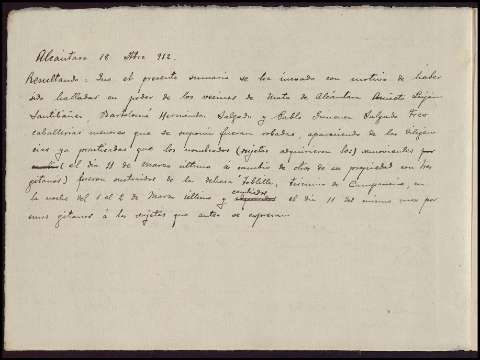 Alcántara 18 Abril 912.
Resultando: Que el presente sumario se ha incoado con motivo de haber
sido halladas en poder de los vecinos de Mata de Alcántara Aniceto Luján
Santibáñez, Bartolomé Hernández Salgado y Pablo Jimenez Salgado tres
caballerias menores que se suponia fueran robadas, apareciendo de las diligen-
cias ya practicadas que los nombrados (sujetos adquirieron los) semovientes por
el dia 11 de Marzo ultimo a cambio de otros de su propiedad con tres
gitanos) fueron sustraidos de la dehesa termino de Campanario, en
la noche del 1 al 2 de Marzo ultimo y cambiados el dia 11 del mismo mes por
unos gitanos á los sujetos que antes se expresan